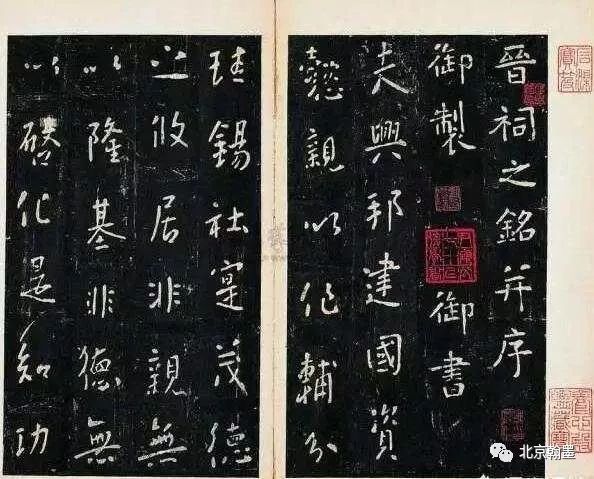 晉祠之銘并序
御製 御書
夫興邦建國資
懿親以作輔分
珪錫社寔茂德
之攸居非親無
以隆基非德無
以啓化是知功
北京翰墨